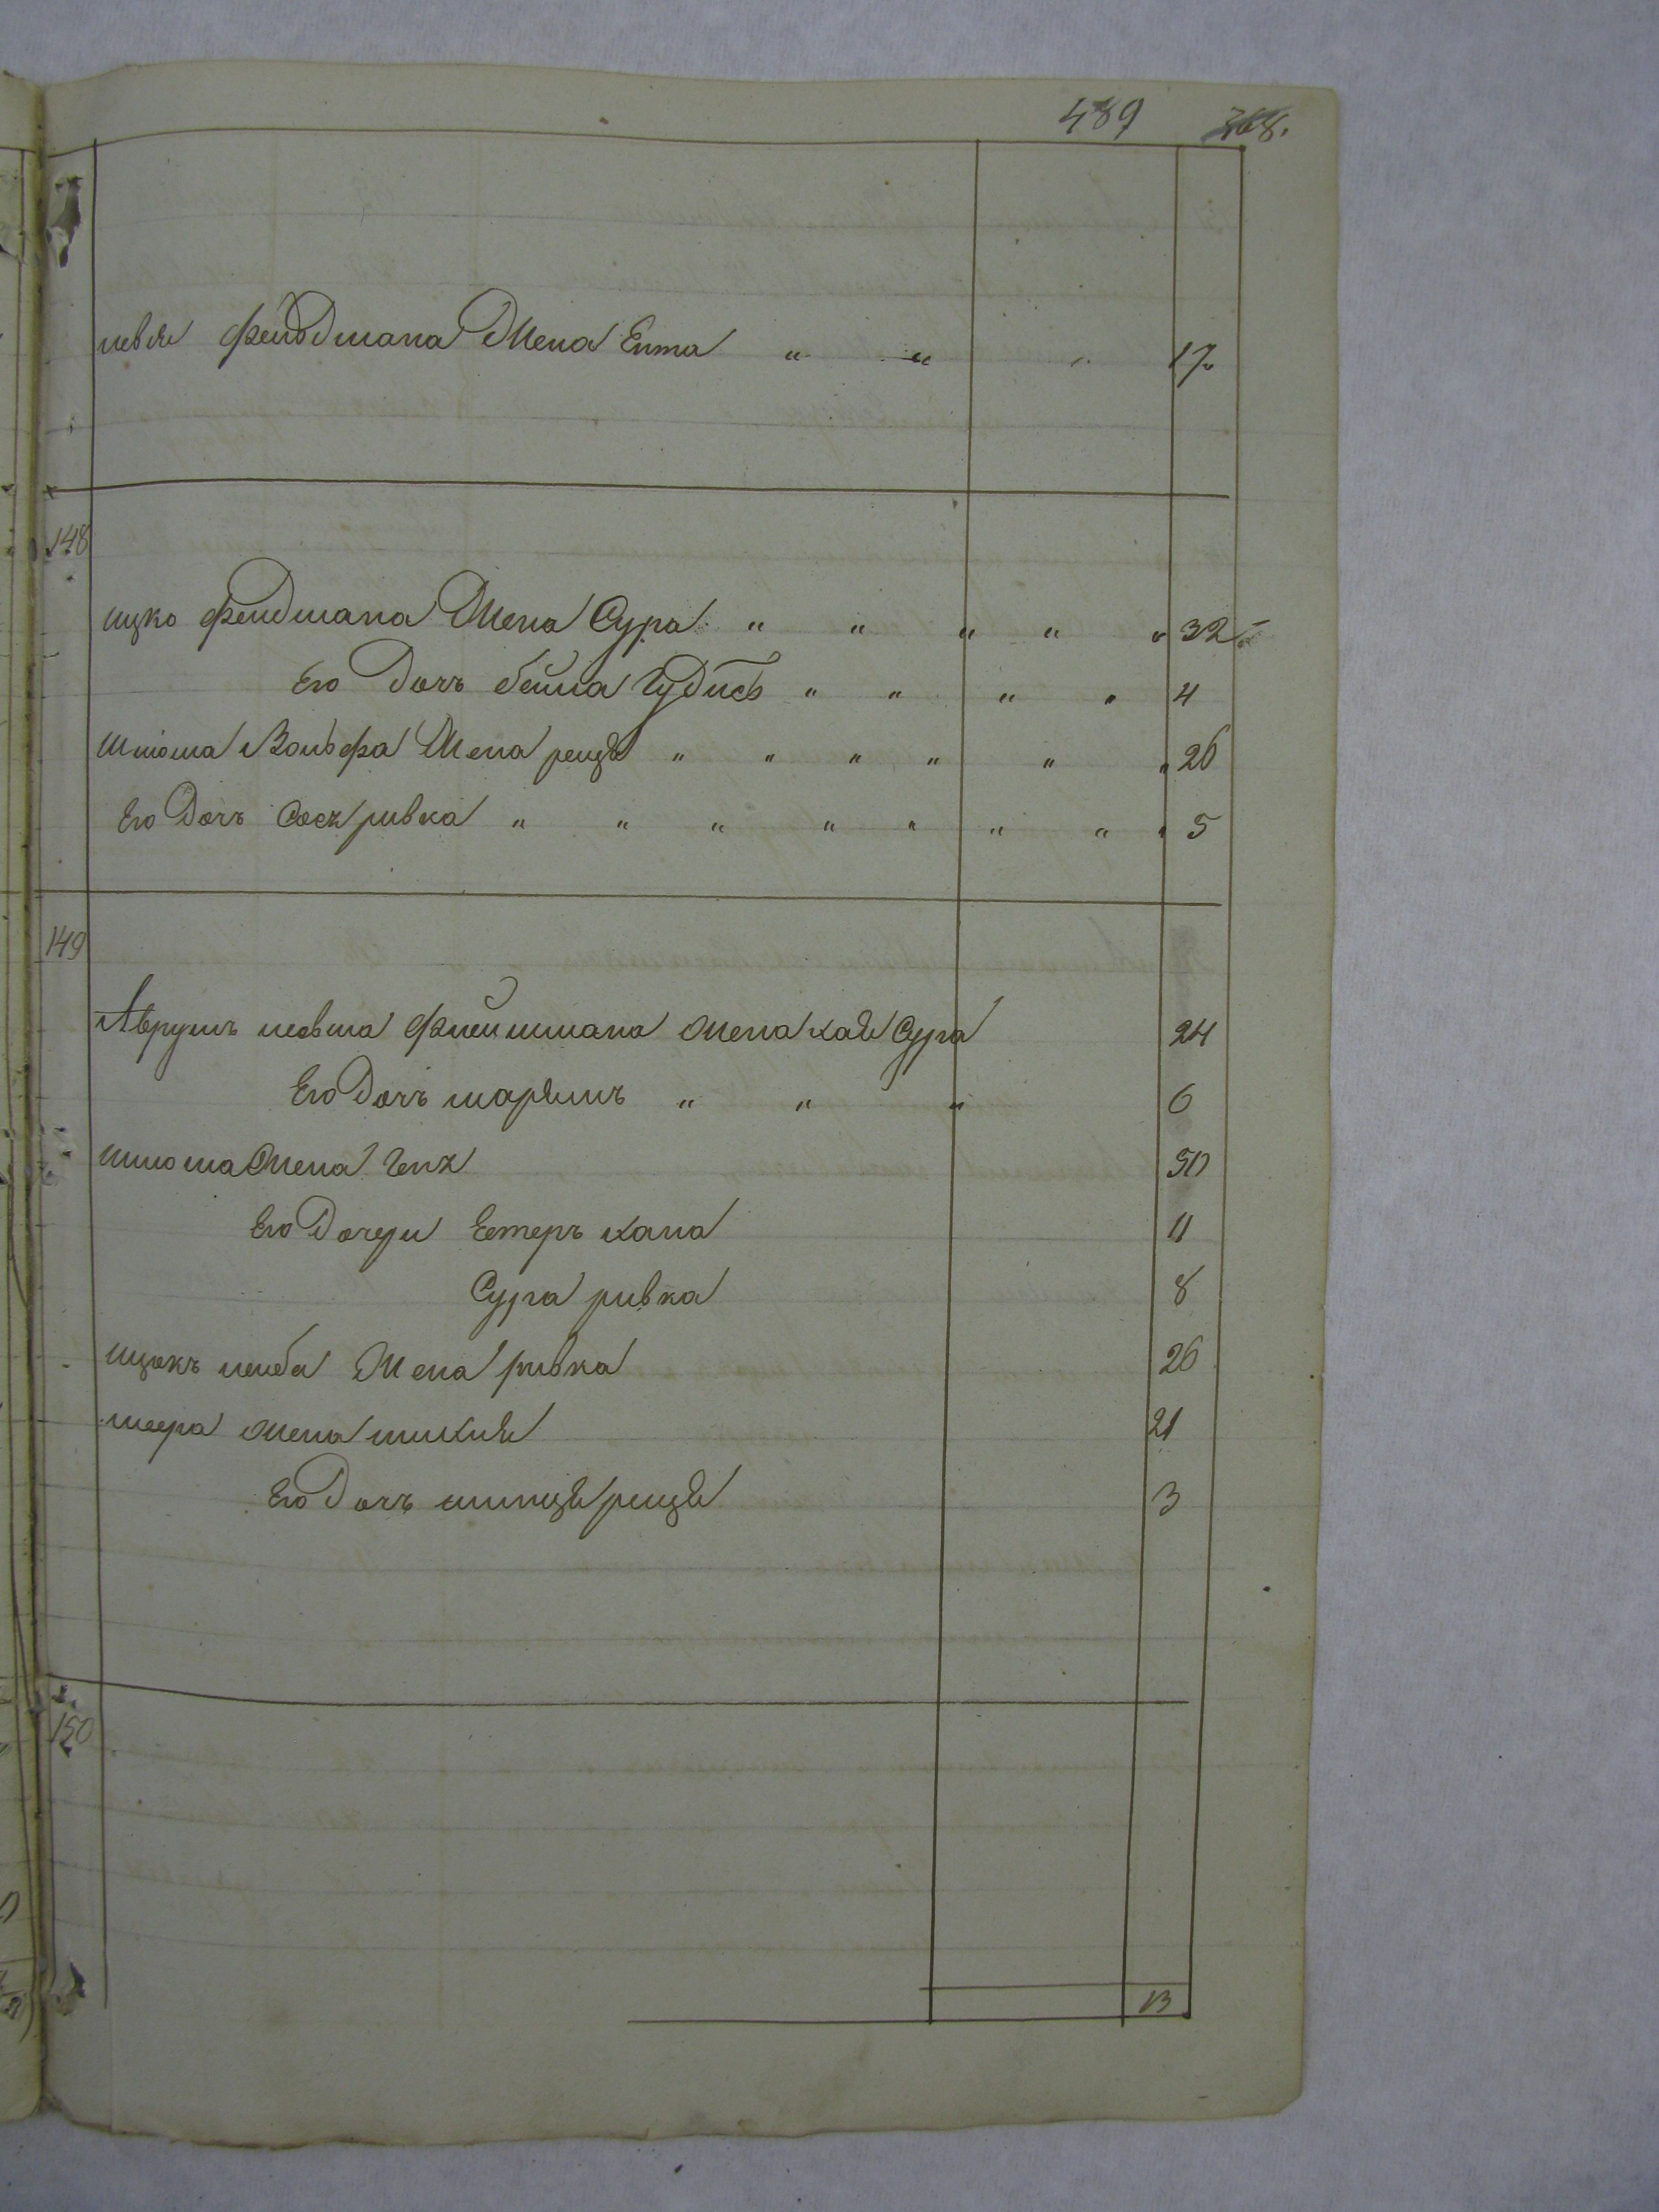 489 368.
левы Фельдмана Жена Ента " " " 17
148
ицко Фелдмана Жена Сура " " " " " 32
Его Дочь бейла Гудись " " " " 4
Шлома Вольфа Жена рейзя " " " " " " 26
Его Дочь Сося ривка " " " " " " " " 5
149
Аврумъ иовша Флейшмана Жена хая Сура 24
Его Дочь марямъ " " " 6
шлома Жена Геня 50
Его Дочери Естеръ хана 11
Сура ривка 8
ицекъ лейба Жена ривка 26
меера Жена 21
Его Дочь шпинця рейзя 3
150
13